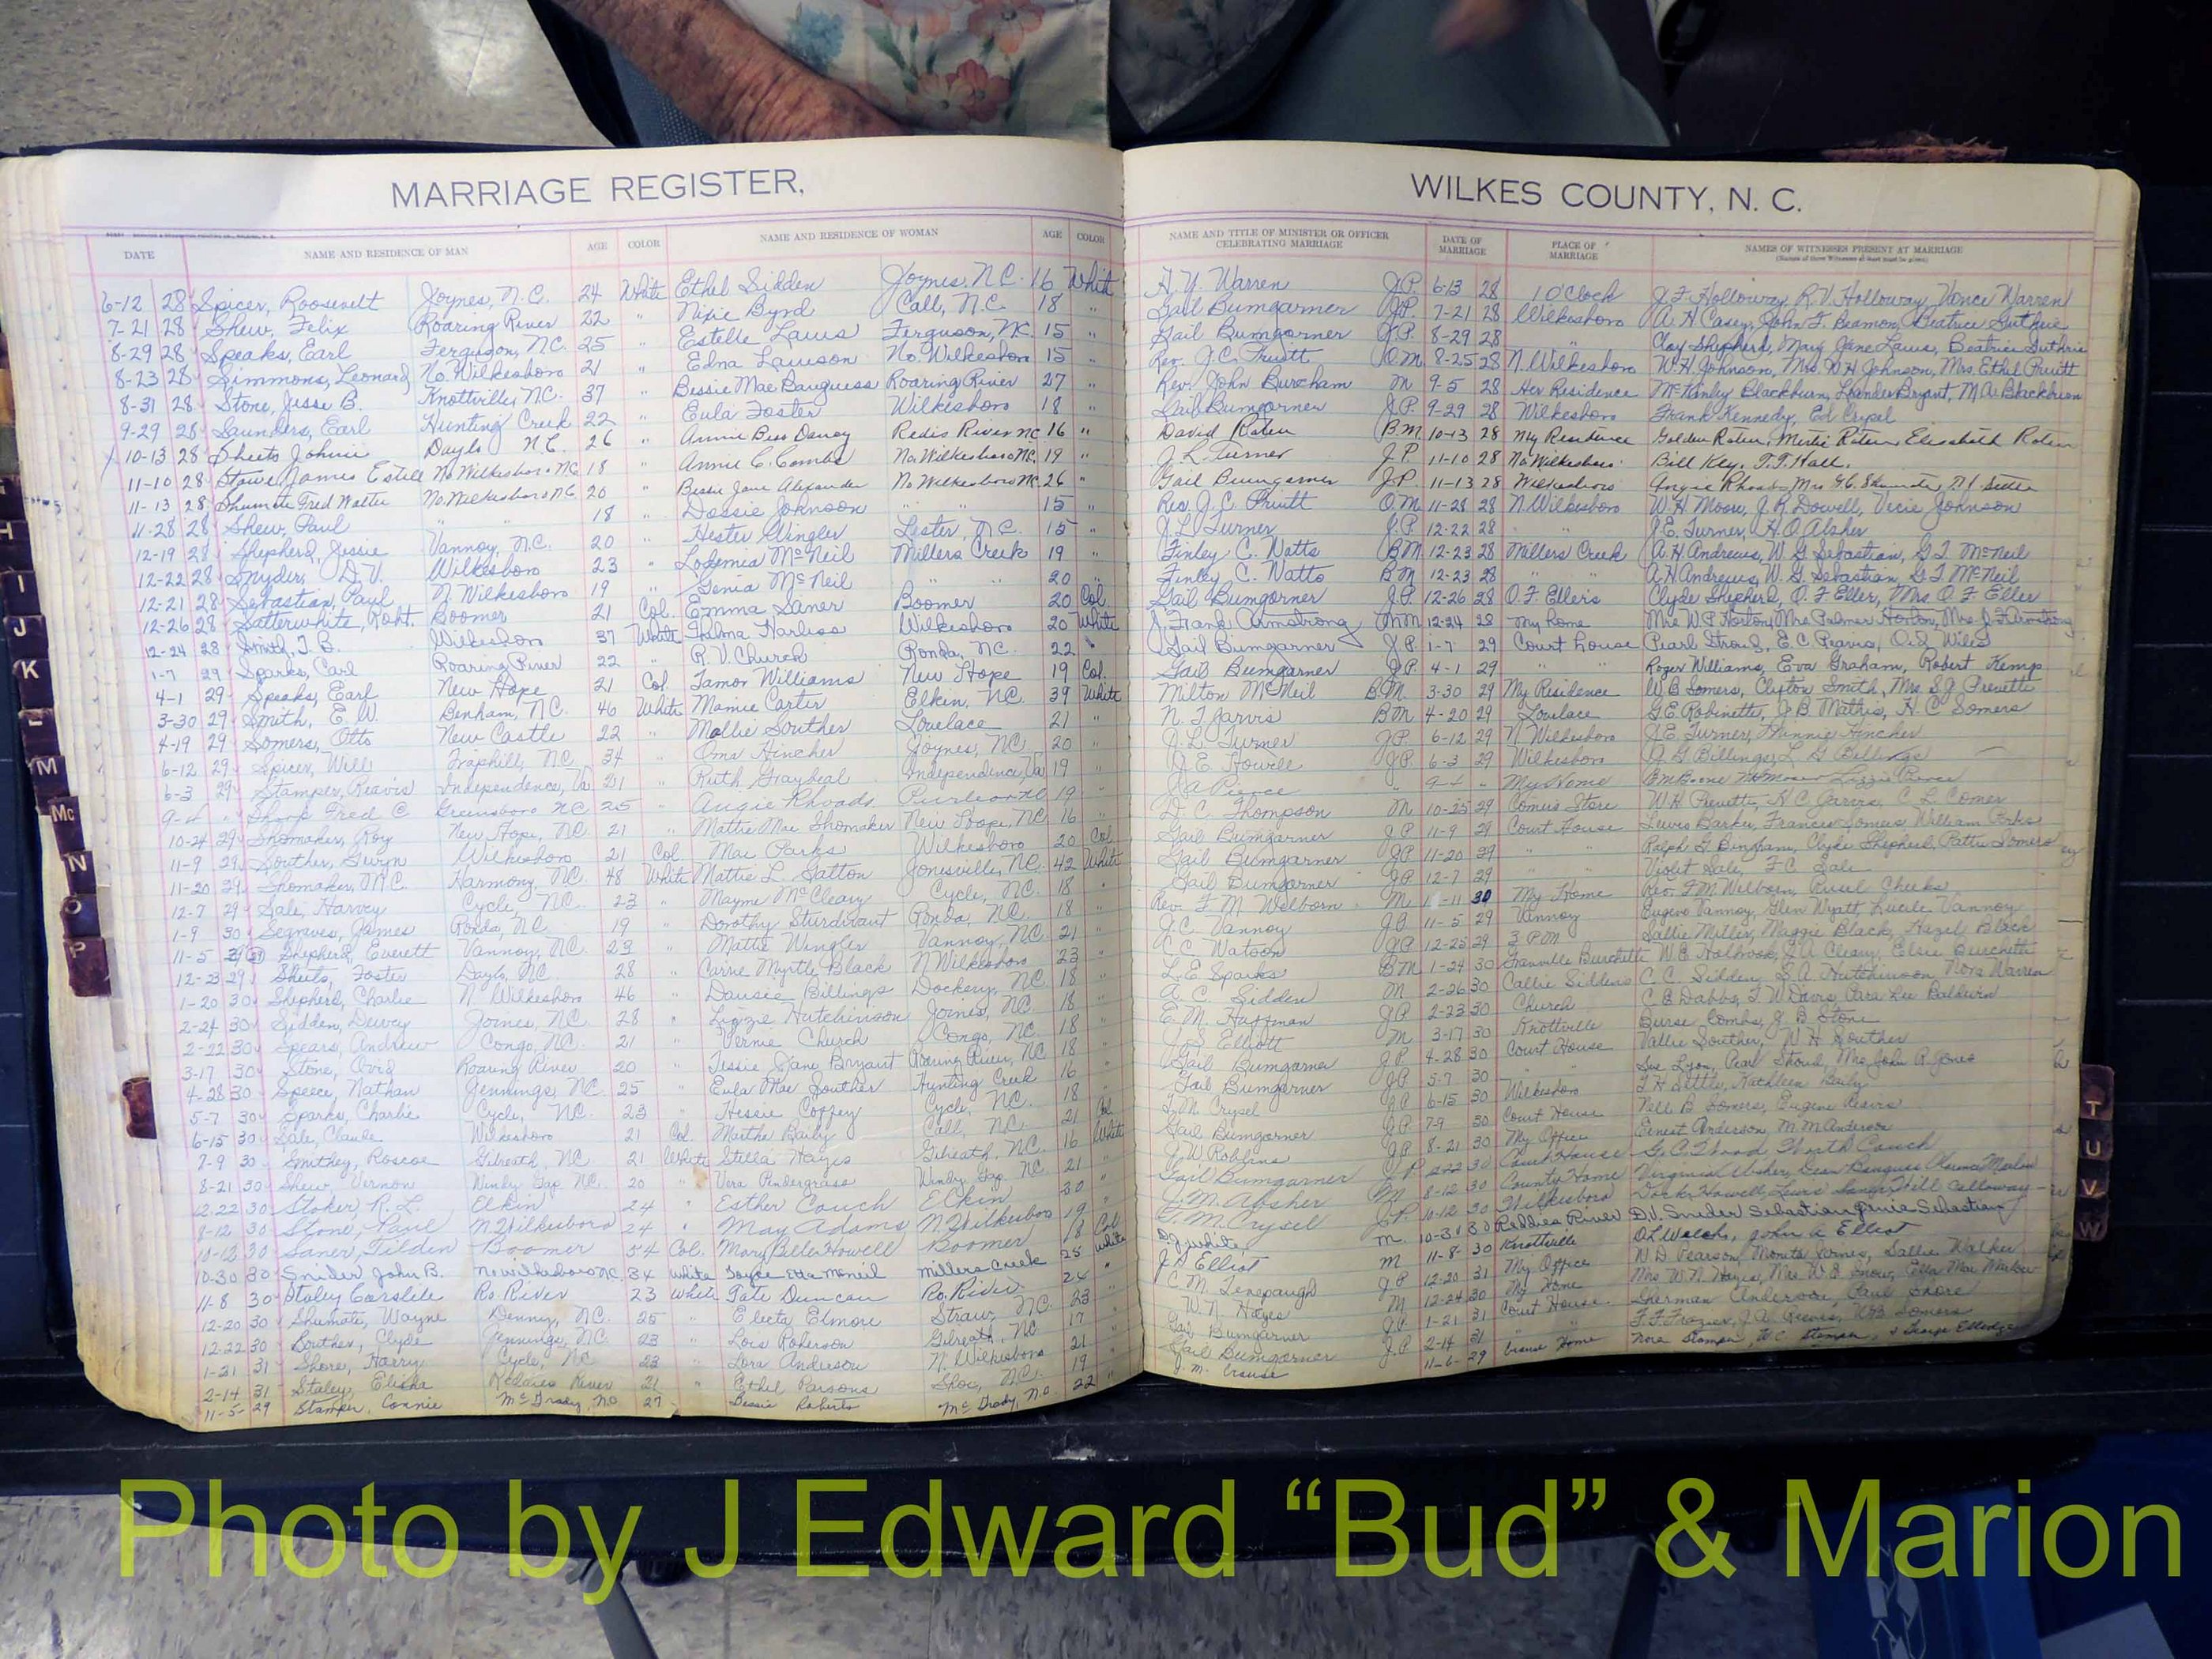 MARRIAGE REGISTER,
WILKES COUNTY, N. C.
DATE NAME AND RESIDENCE OF MAN AGE COLOR NAME AND RESIDENCE OF WOMAN AGE COLOR
NAME AND TITLE OF MINISTER OR OFFICER CELEBRATING MARRIAGE DATE OF MARRIAGE PLACE OF MARRIAGE NAMES OF WITNESSES PRESENT AT MARRIAGE
6-12 28 Spicer, Roosevelt Joynes, N.C. 24 White Ethel Sidden Joynes, N.C. 16 White
7-21 28 Shew, Felix Roaring River 22 " Nixie Byrd Call, N.C. 18 "
8-29 28 Speaks, Earl Ferguson, N.C. 25 " Estelle Laws Ferguson, N.C. 15 "
8-23 28 Simmons, Leonard No. Wilkesboro 21 " Edna Lawson No. Wilkesboro 15 "
8-31 28 Stone, Jesse B. Knottville, N.C. 37 " Bessie Mae Bauguess Roaring River 27 "
9-29 28 Saunders, Earl Hunting Creek 22 " Eula Foster Wilkesboro 18 "
10-13 28 Sheets Johnie N.C. 26 " Annie Bess Redis River NC 16 "
11-10 28 James Estell No Wilkesboro NC 18 " Annie C. Combs No. Wilkesboro NC. 19 "
11-13 28 Shumate Fred Walter No. Wilkesboro NC 20 " Bessie Jane Alexander No Wilkesboro NC 26 "
11-28 28 Shew, Paul " " 18 " Dossie Johnson " " 15 "
12-19 28 Shepherd, Jessie Vannoy, N.C. 20 " Hester Wingler Lester, N.C. 15 "
12-22 28 Snyder, D.V. Wilkesboro 23 " McNeil Millers Creek 19 "
12-21 28 Sebastian, Paul N. Wilkesboro 19 " Genia McNeil " " 20 "
12-26 28 Satterwhite, Robt. Boomer 21 Col. Emma Laner Boomer 20 Col.
12-24 28 Smith, T.B. Wilkesboro 37 White Thelma Harless Wilkesboro 20 White
1-7 29 Sparks, Carl Roaring River 22 " R.V. Church Ronda, NC. 22 "
4-1 29 Speaks, Earl New Hope 21 Col. Tamor Williams New Hope 19 Col.
3-30 29 Smith, E.W. Benham, N.C. 46 White Mamie Carter Elkin, N.C. 39 White
4-19 29 Somers, Otto New Castle 22 " Mollie Souther Lovelace 21 "
6-12 29 Spicer, Will Traphill, N.C. 34 " Oma Hincher Joynes, N.C. 20 "
6-3 29 Stamper, Reavis Independence, Va 21 " Ruth Graybeal Independence, Va 19 "
9-4 " Shoop Fred C Greensboro NC 25 " Angie Rhoads 19 "
10-24 29 Shomaker, Roy New Hope, N.C. 21 " Mattie Mae Shomaker New Hope, N.C. 16 "
11-9 29 Souther, Gwyn Wilkesboro 21 Col Mae Parks Wilkesboro 20 Col
11-20 29 Shomaker, M.C. Harmony, N.C. 48 White Mattie L. Gatton Jonesville, N.C. 42 White
12-7 29 Sale, Harvey Cycle, N.C. 23 " Mayme McCleary Cycle, N.C. 18 "
1-9 30 Segraves, James Ronda, N.C. 19 " Dorothy Sturdivant Ronda, N.C. 18 "
11-5 29 Shepherd, Everett Vannoy, N.C. 23 " Mattie Wingler Vannoy, N.C. 21 "
12-23 29 Sheets, Foster N.C. 28 " Carrie Myrtle Black N Wilkesboro 23 "
1-20 30 Shepherd, Charlie N. Wilkesboro 46 " Dausie Billings Dockery, N.C. 18 "
2-24 30 Sidden, Dewey Joines, N.C. 28 " Lizzie Hutchinson Joines, N.C. 18 "
2-22 30 Spears, Andrew Congo, N.C. 21 " Vernie Church Congo, N.C. 18 "
3-17 30 Stone, Ovid Roaring River 20 " Tessie Jane Bryant Roaring River, N.C. 18 "
4-28 30 Speece, Nathan Jennings, N.C. 25 " Eula Mae Souther Hunting Creek 16 "
5-7 30 Sparks, Charlie Cycle, N.C. 23 " Coffey Cycle, N.C. 18 "
6-15 30 Sale, Claude Wilkesboro 21 Col. Martha Baily Call, N.C. 21 Col
7-9 30 Smithey, Roscoe Gilreath, N.C. 21 White Stella Hayes Gilreath, N.C. 16 White
8-21 30 Shew, Vernon Windy Gap N.C. 20 " Vera Pendergrass Windy Gap. N.C. 21 "
30 Stoker, R.L. Elkin 24 " Esther Couch Elkin 20 "
8-12 30 Stone, Paul N Wilkesboro 24 " May Adams N. Wilkesboro 19 "
10-12 30 Laner, Tilden Boomer 54 Col. Mary Belle Howell Boomer 18 Col
10-30 30 Snider John B. No Wilkesboro N.C. 34 White McNeil Millers Creek 25 White
11-8 30 Staley Carslile Ro. River 23 White Tate Duncan Ro. River 24 "
12-20 30 Shumate, Wayne Denny, N.C. 25 " Electa Elmore Straw, N.C. 23 "
12-22 30 Souther, Clyde Jennings, N.C. 23 " Lois Roberson Gilreath, N.C. 17 "
1-21 31 Shore, Harry Cycle, N.C. 23 " Lora Anderson N. Wilkesboro 21 "
2-14 31 Staley, Elisha Reddies River 21 " Ethel Parsons Shoe, N.C. 19 "
11-5-29 Stamper, Connie McGrady, N.C 27 " Bessie Roberts McGrady, N.C. 22 "
A. Y. Warren J.P. 6-13 28 1 O'Clock J.F. Holloway, R.V. Holloway, Vance Warren
Gail Bumgarner J.P. 7-21 28 Wilkesboro A.H. Casey, John F. Beamon, Beatrice Guthrie
Gail Bumgarner J.P. 8-29 28 " Clay Shepherd, Mary Jane Laws, Beatrice Guthrie
Rev. J.C. Pruitt O.M 8-25 28 N. Wilkesboro W.H. Johnson, Mrs W H Johnson, Mrs. Ethel Pruitt
Rev. John Burcham M 9-5 28 Her Residence McKinley Blackburn, Lander Bryant, M.A. Blackburn
Gail Bumgarner J.P. 9-29 28 Wilkesboro Frank Kennedy, Ed Crysel
David Roten B.M. 10-13 28 My Residence Golden Roten, Roten, Elizabeth Roten
J.L. Turner J.P. 11-10 28 No Wilkesboro Bill Key. T.T. Hall.
Gail Bumgarner J.P. 11-13 28 Wilkesboro Angie Rhoads, Mrs
Rev. J.C. Pruitt O.M 11-28 28 N. Wilkesboro W.H. Moore, J.R. Dowell, Vicie Johnson
J.L. Turner J.P. 12-22 28 " " J.E. Turner, H.O. Absher
Finley C. Watts B.M. 12-23 28 Millers Creek A.H. Andrews, W.G. Sebastian, G.T. McNeil
Finley C. Watts B.M 12-23 28 " " A.H. Andrews, W.G. Sebastian, G.T. McNeil
Gail Bumgarner J.P. 12-26 28 O.F. Eller's Clyde Shepherd, O.F. Eller, Mrs O.F Eller
J. Frank Armstrong MM 12-24 28 My home Mrs W.P. Horton, Mrs Palmer Horton, Mrs. J.F. Armstrong
Gail Bumgarner J.P. 1-7 29 Court house Pearl Stroud, E.C. Reavis, Wiles
Gail Bumgarner J.P. 4-1 29 " " Roger Williams, Eva Graham, Robert Kemp
Milton McNeil B.M. 3-30 29 My Residence W.B. Somers, Clyton Smith, Mrs S.J. Prevette
N.T. Jarvis B M 4-20 29 Lovelace G.E. Robinette, J.B. Mathis, H.C. Somers
J.L. Turner J.P. 6-12 29 N. Wilkesboro J.E. Turner, Minnie Hincher
J.E. Howell J.P. 6-3 29 Wilkesboro J.G. Billings, L.G. Billings
J A Pierce " 9-4 " My Home
D.C. Thompson M 10-25 29 Comers Store W.H. Prevette, H.C. C.L. Comer
Gail Bumgarner J.P 11-9 29 Court House Lewis Barker, Frances Somers William Parks
Gail Bumgarner J.P 11-20 29 " " Ralph G. Bingham, Clyde Shepherd, Somers
Gail Bumgarner J.P 12-7 29 " " Violet Sale, F.C. Sale
Rev. F.M. Welborn M 1-11 30 My Home Rev. F.M. Welborn, Cheeks
J.C. Vannoy J.P 11-5 29 Vannoy Eugene Vannoy, Glen Wyatt, Lucile Vannoy
C.C. Watson J.P 12-25 29 3 PM Sallie Miller, Maggie Black, Hazel Black
L.E. Sparks B M 1-24 30 Granville Burchette W.E. Holbrook, J.A. Cleary, Elsie Burchette
A.C. Sidden M 2-26 30 Callie Siddens C.C. Sidden, S.A. Hutchinson, Nora Warren
E.M. Haffman J.P 2-23 30 Church C.E. Dabbs, T.W. Davis, Lee Baldwin
J.A. Elliott M 3-17 30 Knottville Combs, J.D. Stone
Gail Bumgarner J.P. 4-28 30 Court House Vallie Souther, W.H. Souther
Gail Bumgarner J.P 5-7 30 " " Sue Lyon, Pearl Stroud, Mrs John R. Jones
T.M. Crysel J.P 6-15 30 Wilkesboro T.H. Settle, Kathleen Baily
Gail Bumgarner J.P 7-9 30 Court House Nell B. Somers, Eugene Reavis
J.W. Robbins J.P 8-21 30 My Office Ernest Anderson, M.M. Anderson
Gail Bumgarner J.P 30 Court House G.C. Couch
J.M. Absher M 8-12 30 County Home Virginia Absher, Dean Bauguss
T.M. Crysel J.P. 10-12 30 Wilkesboro Howell, Laner, Will Calloway
D.J. White, M. 10-31 30 Reddies River D.V. Snider Sebastian, Genia Sebastian
J.A. Elliot M 11-8-30 Knottville D.L. Welch, John A Elliot
C.M. J.P 12-20 31 My Office W.D. Pearson, Sallie Walker
W.N. Hayes M 12-24 30 My Home Mrs W.N. Hayes, Mrs W.E. Snow, Ella Mae
Gail Bumgarner J.P 1-21 31 Court House Sherman Anderson, Paul Shore
Gail Bumgarner J.P 2-14 31 " " F.F. Frazier, J.A. Reeves, W.B. Somers
J.M. Crouse 11-6-29 Crouse Home Nora Stamper, W.C. Stamper, & George Elledge
H
I
J
K
L
M
Mc
N
O
P
T
U
V
W
Photo by J Edward “Bud” & Marion